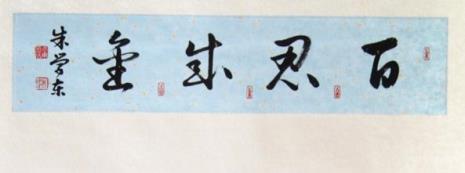 百忍成金
朱学东